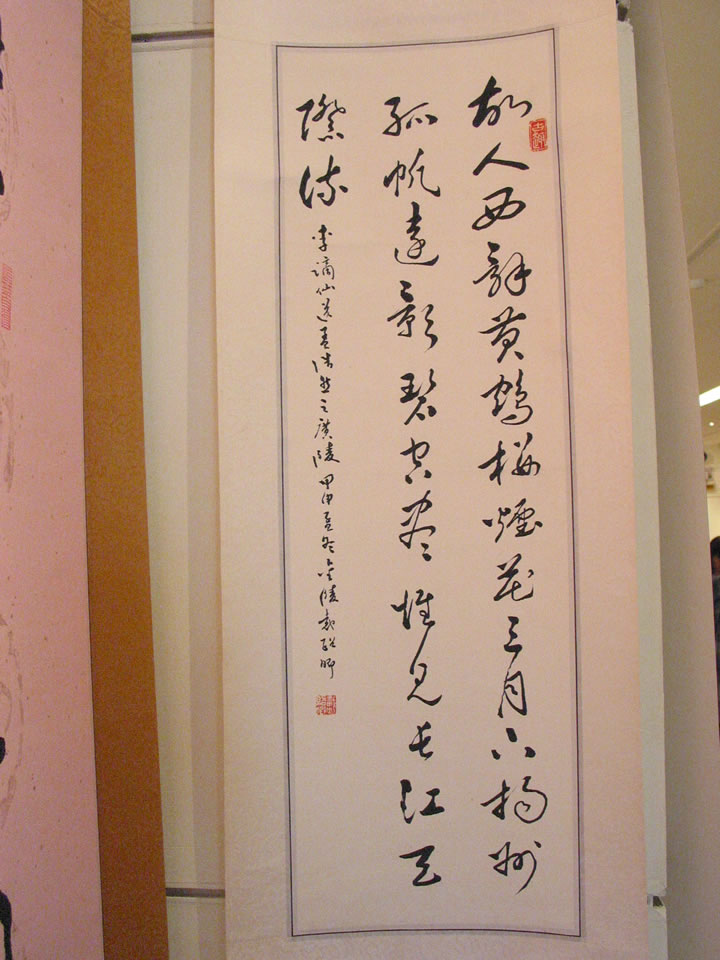 故人西辞黄鹤楼煙花三月下揚州
孤帆遠影碧空尽惟見長江天
際流
李謫仙送孟浩然之廣陵 甲申孟冬 金陵